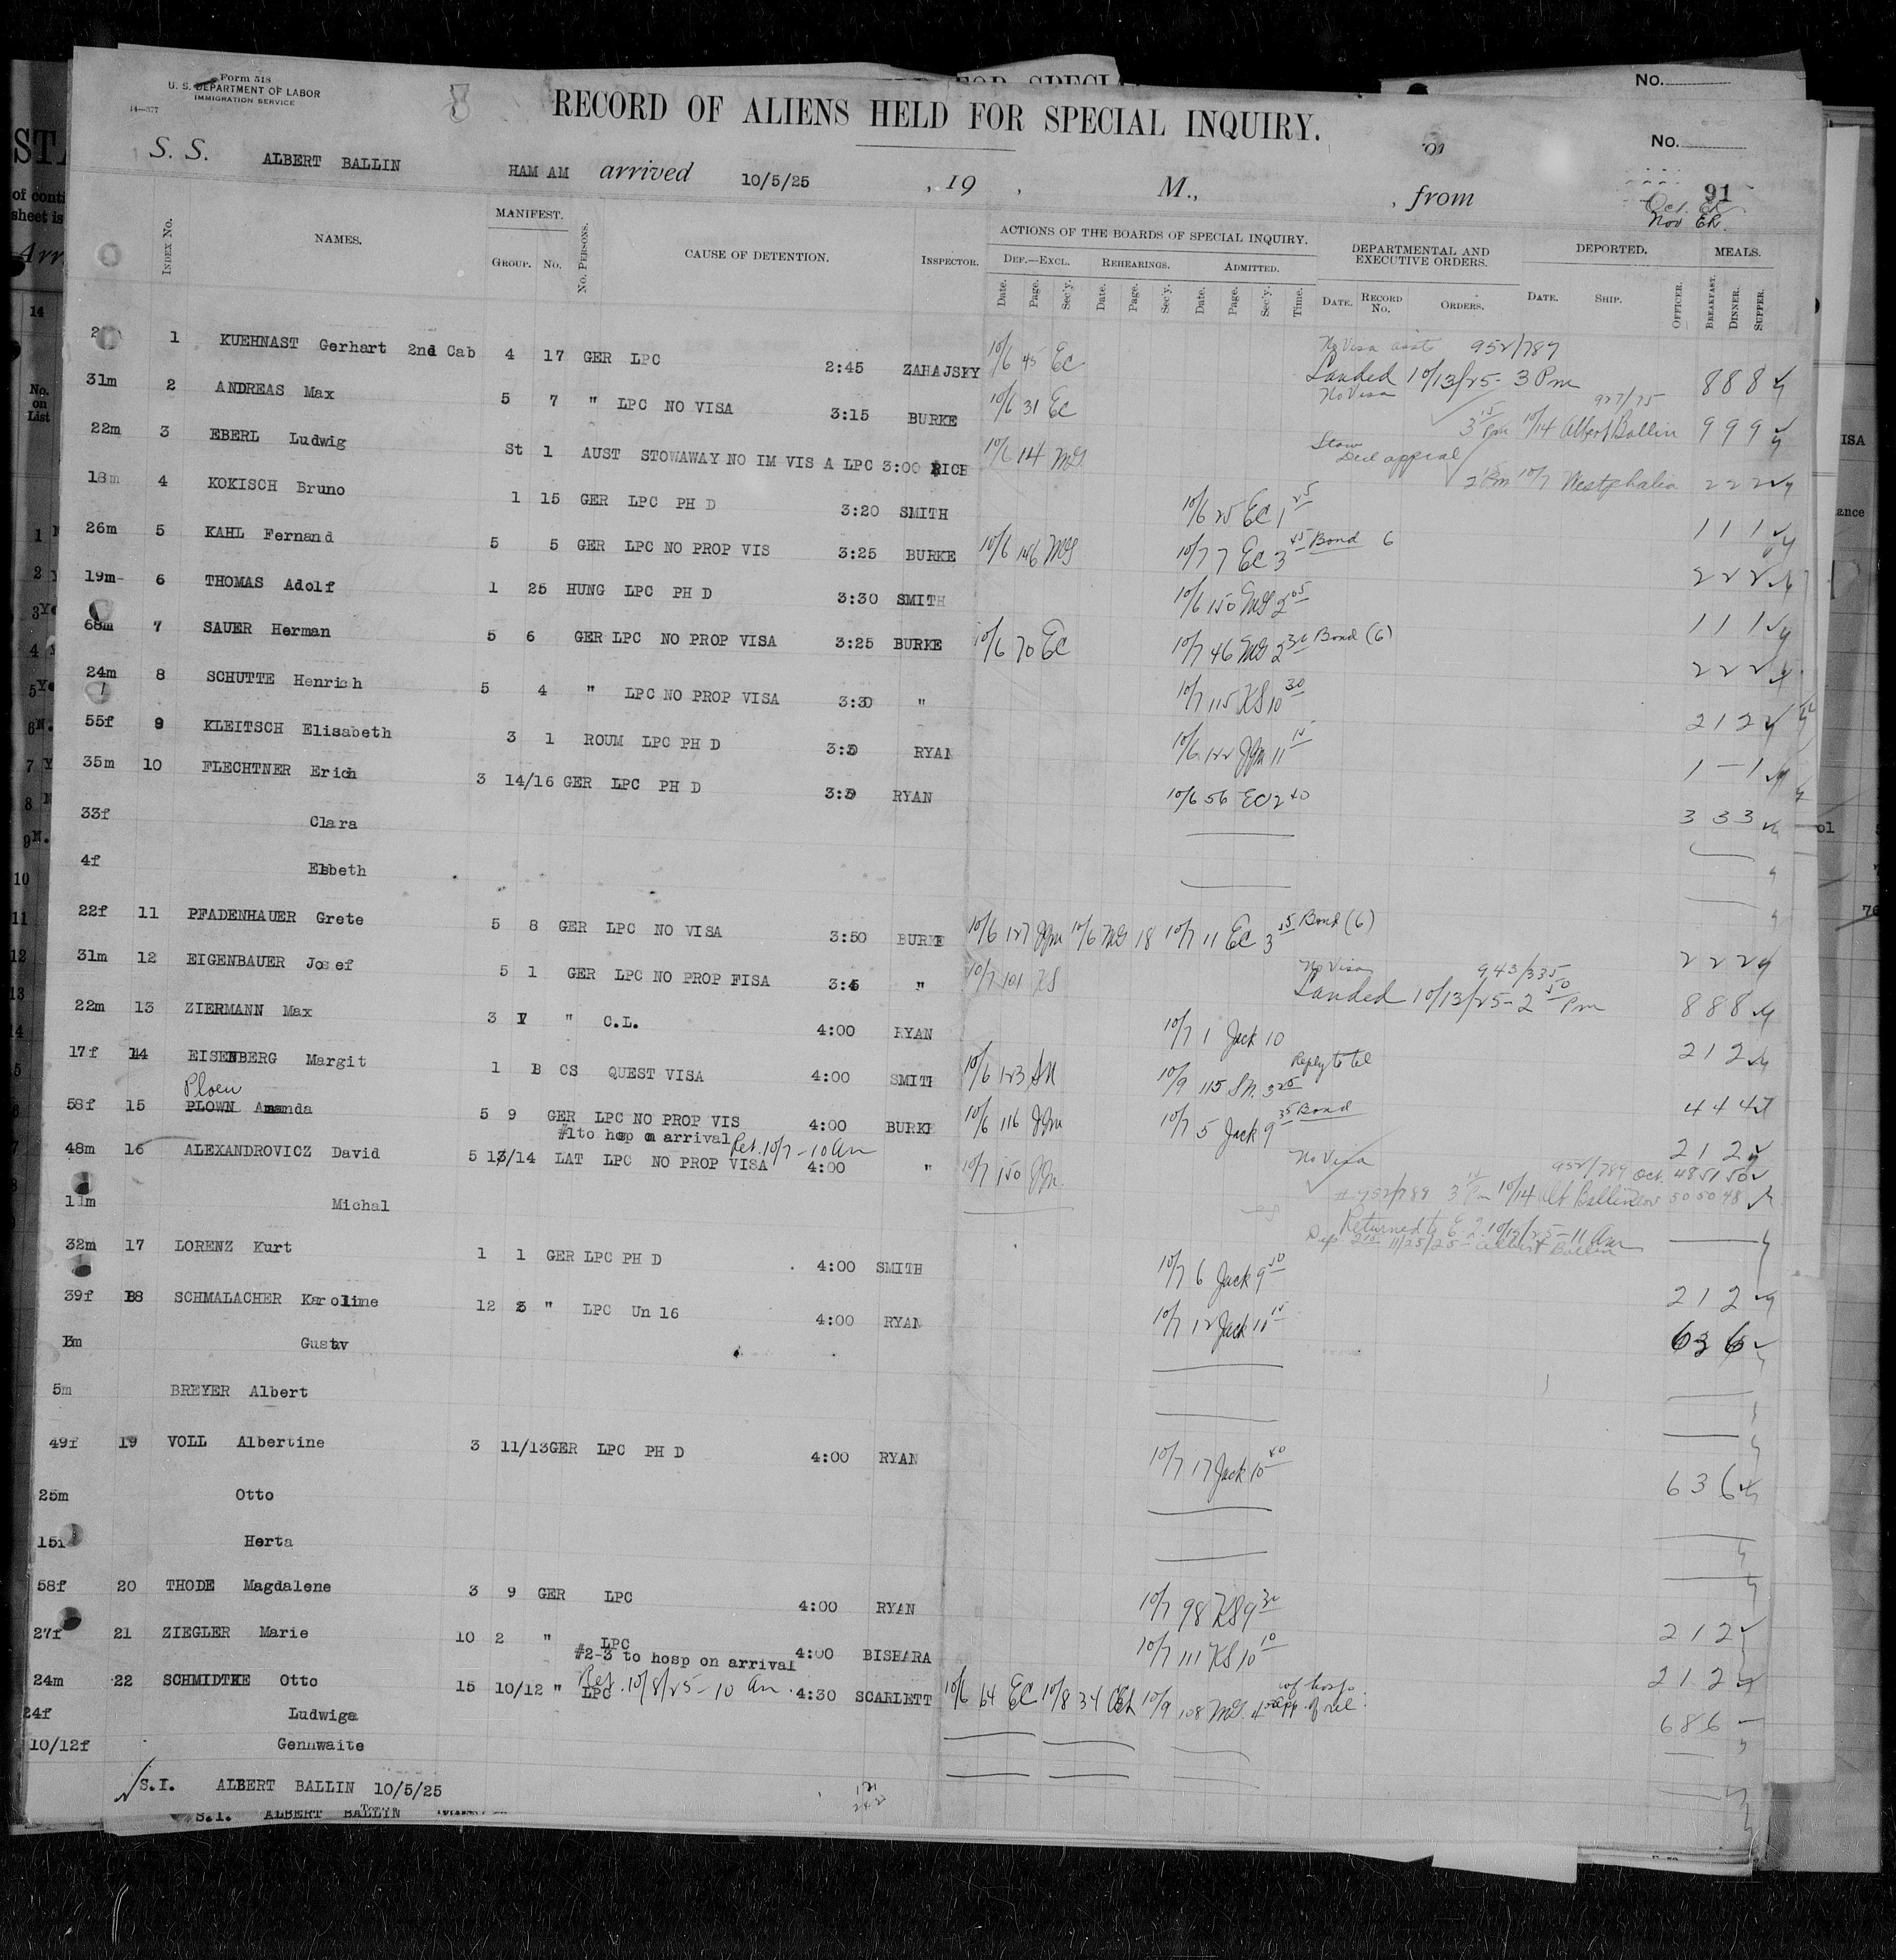 Form 518
U. S. DEPARTMENT OF LABOR
IMMIGRATION SERVICE
14—377
RECORD OF ALIENS HELD FOR SPECIAL INQUIRY.
No.
No.
S. S. ALBERT BALLIN HAM AM arrived 10/5/25 , 19 , M., , from
91
Oct. Ek
Nov Ek.
INDEX No. NAMES. MANIFEST. GROUP. No. No. PERSONS. CAUSE OF DETENTION. INSPECTOR.
ACTIONS OF THE BOARDS OF SPECIAL INQUIRY.
DEF.—EXCL. REHEARINGS. ADMITTED.
Date. Page. Sec'y. Date. Page. Sec'y. Date. Page. Sec'y. Time.
DEPARTMENTAL AND EXECUTIVE ORDERS.
DATE. RECORD No. ORDERS.
DEPORTED.
DATE. SHIP. OFFICER.
MEALS.
BREAKFAST. DINNER. SUPPER.
1 KUEHNAST Gerhart 2nd Cab 4 17 GER LPC 2:45 ZAHAJSKY 10/6 45 EC No Visa 952/789
Landed 10/13/25 - 3 Pm 8 8 8
31m 2 ANDREAS Max 5 7 " LPC NO VISA 3:15 BURKE 10/6 31 EC No Visa 927/75
3 15 Pm 10/14 Albert Ballin 9 9 9
22m 3 EBERL Ludwig St 1 AUST STOWAWAY NO IM VIS A LPC 3:00 RICE 10/6 14 MG Stow
Decl appeal 2 Pm 10/7 Westphalia 2 2 2
18m 4 KOKISCH Bruno 1 15 GER LPC PH D 3:20 SMITH 10/6 25 EC 1 25 1 1 1
26m 5 KAHL Fernand 5 5 GER LPC NO PROP VIS 3:25 BURKE 10/6 146 MG 10/7 7 EC 3 45 Bond 6 2 2 2
19m 6 THOMAS Adolf 1 25 HUNG LPC PH D 3:30 SMITH 10/6 150 MG 2 05 1 1 1
68m 7 SAUER Herman 5 6 GER LPC NO PROP VISA 3:25 BURKE 10/6 70 EC 10/7 46 MG 2 30 Bond (6) 2 2 2
24m 8 SCHUTTE Henrich 5 4 " LPC NO PROP VISA 3:30 " 10/7 115 KS 10 30 2 1 2
55f 9 KLEITSCH Elisabeth 3 1 ROUM LPC PH D RYAN 10/6 122 JJm 11 15 1 — 1
35m 10 FLECHTNER Erich 3 14/16 GER LPC PH D RYAN 10/6 56 EC 12 40 3 3 3
33f Clara
4f Elsbeth
22f 11 PFADENHAUER Grete 5 8 GER LPC NO VISA 3:50 BURKE 10/6 127 JJm 10/6 MG 18 10/7 11 EC 3 55 Bond (6) 2 2 2
31m 12 EIGENBAUER Josef 5 1 GER LPC NO PROP FISA 3:45 " 10/7 101 KS No Visa 943/335
Landed 10/13/25 - 2 50 Pm 8 8 8
22m 13 ZIERMANN Max 3 " C.L. 4:00 RYAN 10/7 1 Jack 10 2 1 2
17f 14 EISENBERG Margit 1 CS QUEST VISA 4:00 SMITH 10/6 123 SN 10/9 115 SN. 3 25 Reply to tel 4 4 4
Ploen
58f 15 PLOWN Amanda 5 9 GER LPC NO PROP VIS 4:00 BURKE 10/6 116 JJm 10/7 5 Jack 9 35 Bond 2 1 2
#1 to hosp on arrival Ret. 10/7 - 10 am
48m 16 ALEXANDROVICZ David 5 13/14 LAT LPC NO PROP VISA 4:00 " 10/7 150 JJm. No Visa 952/789 Oct. 48 51 50
# 952/789 3 Pm 10/14 Alb Ballin Nov 50 50 48
11m Michal
Returned to E.I. 10/15/25 - 11 am
Dep 2 15 11/25/25 Albert Ballin
32m 17 LORENZ Kurt 1 1 GER LPC PH D 4:00 SMITH 10/7 6 Jack 9 50 2 1 2
39f 18 SCHMALACHER Karoline 12 " LPC Un 16 4:00 RYAN 10/7 12 Jack 10 15 6 3 6
Gustav
5m BREYER Albert
49f 19 VOLL Albertine 3 11/13 GER LPC PH D 4:00 RYAN 10/7 17 Jack 10 40 6 3 6
25m Otto
15f Herta
58f 20 THODE Magdalene 3 9 GER LPC 4:00 RYAN 10/7 98 KS 9 30 2 1 2
27f 21 ZIEGLER Marie 10 2 " LPC 4:00 BISHARA 10/7 111 KS 10 10 2 1 2
#2-3 to hosp on arrival
Ret. 10/8/25 - 10 am.
24m 22 SCHMIDTKE Otto 15 10/12 " LPC 4:30 SCARLETT 10/6 64 EC 10/8 34 10/9 108 MG. 4 app. of rel. 6 8 6
24f Ludwiga
10/12f Gennwaite
S.I. ALBERT BALLIN 10/5/25
S.I. ALBERT BALLIN